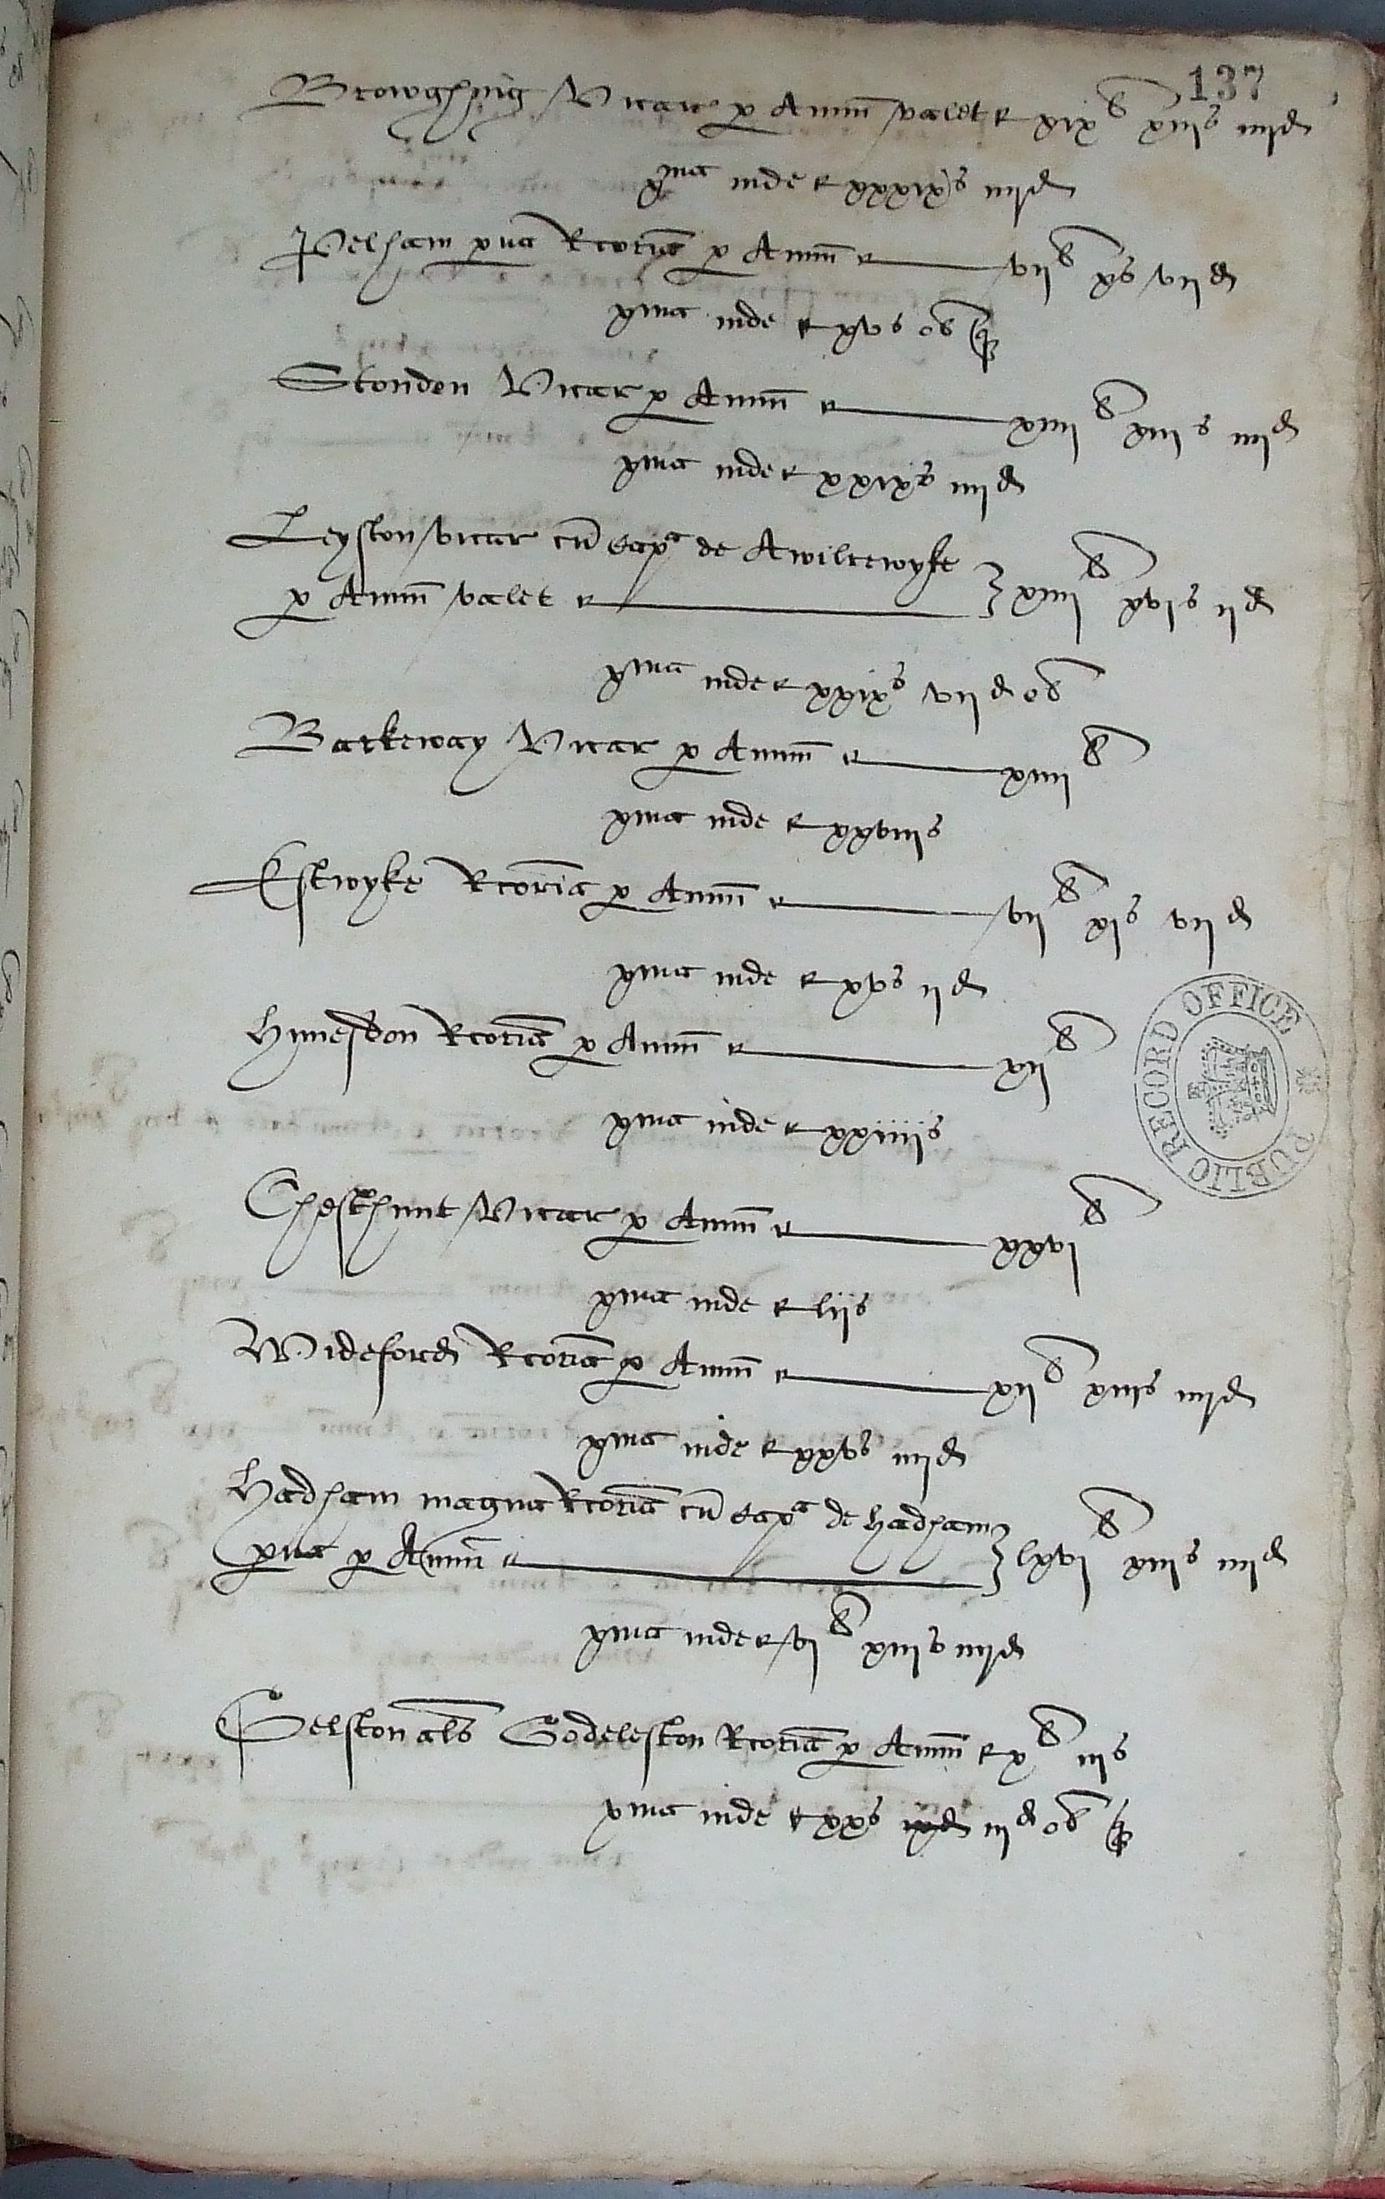 137
Browghing Vicar p Annu valet xix li xiijs iiijd
xma inde xxxixs iiijd
Pelham pua Rcoria p Annu vij li xs vijd
xma inde xvs ob q
Stonden Vicar p Annu xiiij li xiijs iiijd
xma inde xxixs iiijd
Leyston vicar cu cap a de Awilcewyke
p Annu valet xiiij li xvis ijd
xma inde xxixs vijd ob
Barkeway Vicar p Annu xiiij li
xma inde xxviijs
Estwyke Rcoria p Annu vij li xjs vijd
xma inde xvs ijd
Hunesdon Rcoria p Annu xij li
xma inde xxiiijs
Chesthunt Vicar p Annu xxvj li
xma inde lijs
Wideford Rcoria p Annu xij li xiijs iiijd
xma inde xxvs iiijd
Hadham magna Rcoria cu cap a de Hadham
pua p Annu lxvj li xiijs iiijd
xma inde vj li xiijs iiijd
Gelston als Godeleston Rcoria p Annu x li iijs
xma inde xxs iijd ob q
PUBLIC RECORD OFFICE